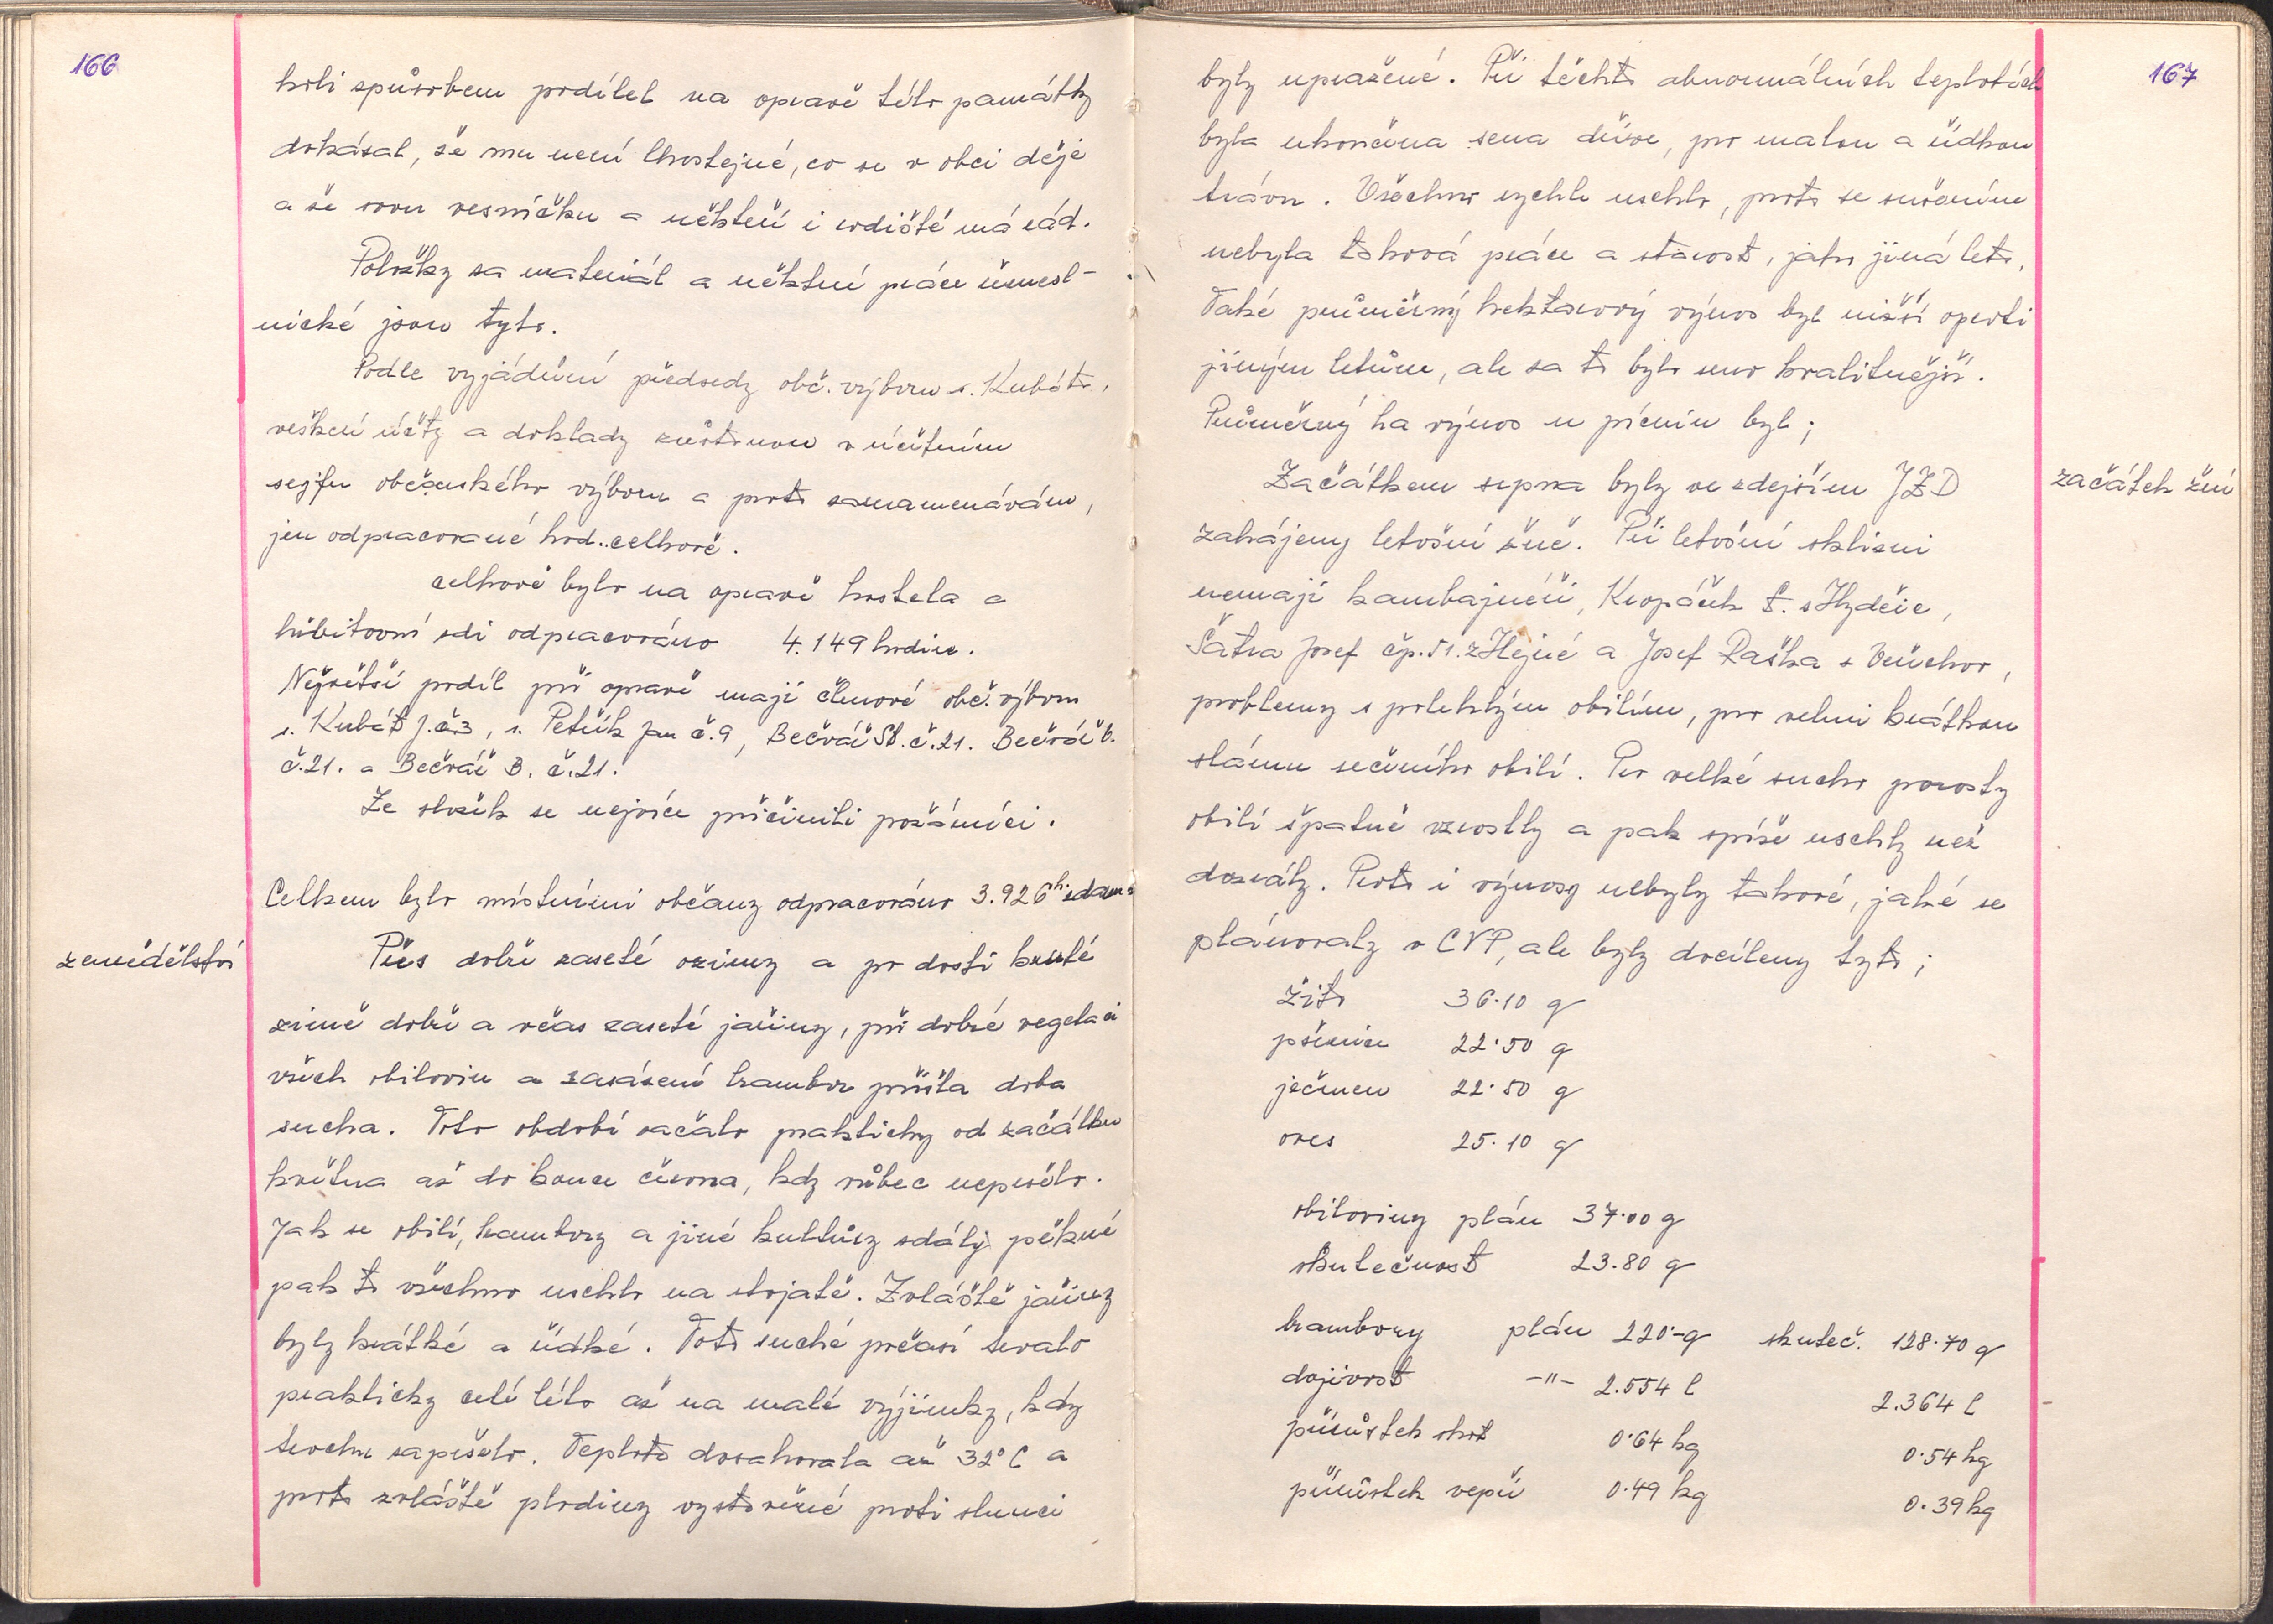 166
koli spůsobem podílel na opravě této památky
dokázal, že mu není lhostejné, co se v obci děje
a že svou vesničku a někteří i rodiště má rád.
Položky za materiál a některé práce řemesl-
nické jsou tyto.
Podle vyjádření předsedy obč. výboru s. Kubáta,
veškeré účty a doklady zůstanou v účetním
sejfu občanského výboru a proto zaznamenávám,
jen odpracované hod. celkově.
celkově bylo na opravě kostela a
hřbitovní zdi odpracováno 4.149 hodin.
Největší podíl při opravě mají členové obč. výboru
s. Kubát J. č.3, s. Petřík Jan č.9, Bečvář St. č.21. Bečvář V.
č.21. a Bečvář B. č.21.
Ze složek se nejvíce přičinili požárníci.
Celkem bylo místními občany odpracováno 3.926 h. zdarma
zemědělství
Přes dobře zaseté oziminy a po dosti kruté
zimě dobře a včas zaseté jařiny, při dobré vegetaci
všech obilovin a zasázení brambor přišla doba
sucha. Toto období začalo prakticky od začátku
května až do konce června, kdy vůbec nepršelo.
Jak se obilí, brambory a jiné kultůry zdály pěkné
pak to všechno uschlo na stojatě. Zvláště jařiny
byly krátké a řídké. Toto suché počasí trvalo
prakticky celé léto až na malé výjimky, kdy
trochu zapršelo. Teplota dosahovala až 32°C a
proto zvláště plodiny vystavené proti slunci
167
byly upražené. Při těchto abnormálních teplotách
byla ukončena sena dříve, pro malou a řídkou
trávu. Všechno rychle uschlo, proto se sušením
nebyla taková práce a starost, jako jiná léta.
Také průměrný hektarový výnos byl nižší oproti
jiným letům, ale za to bylo seno kvalitnější.
Průměrný ha výnos u pícnin byl;
začátek žní
Začátkem srpna byly ve zdejším JZD
zahájeny letošní žně. Při letošní sklizni
nemají kombajnéři, Kropáček F. z Hydčic,
Šatra Josef čp. 51. z Hejné a Josef Raška z Veřechov,
problemy s polehlým obilím, pro velmi krátkou
slámu sečeného obilí. Pro velké sucho porosty
obilí špatně vzrostly a pak spíše uschly než
dozrály. Proto i výnosy nebyly takové, jaké se
plánovaly v CVP, ale byly docíleny tyto;
žito 36.10 q
pšenice 22.50 q
ječmen 22.50 q
oves 25.10 q
obiloviny plán 37.00 q
skutečnost 23.80 q
brambory plán 220.- q skuteč. 128.70 q
dojivost -"- 2.554 l 2.364 l
přírůstek skot 0.64 kg 0.54 kg
přírůstek vepři 0.49 kg 0.39 kg